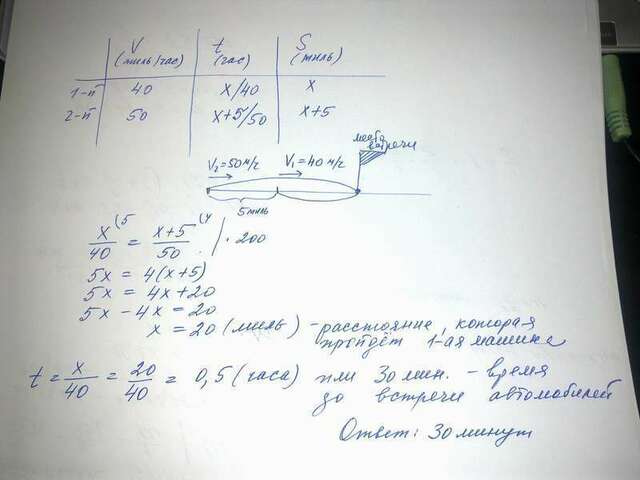 V t S
(миль/час) (час) (миль)
1-й 40 x/40 x
2-й 50 x+5/50 x+5
место встречи
V₂=50м/ч V₁=40м/ч
5миль
x(5 / 40 = x+5(4 / 50 | · 200
5x = 4(x+5)
5x = 4x+20
5x - 4x = 20
x = 20 (миль) - расстояние, которая
пройдёт 1-ая машина
t = x/40 = 20/40 = 0,5 (часа) или 30 мин. - время
до встречи автомобилей
Ответ: 30 минут